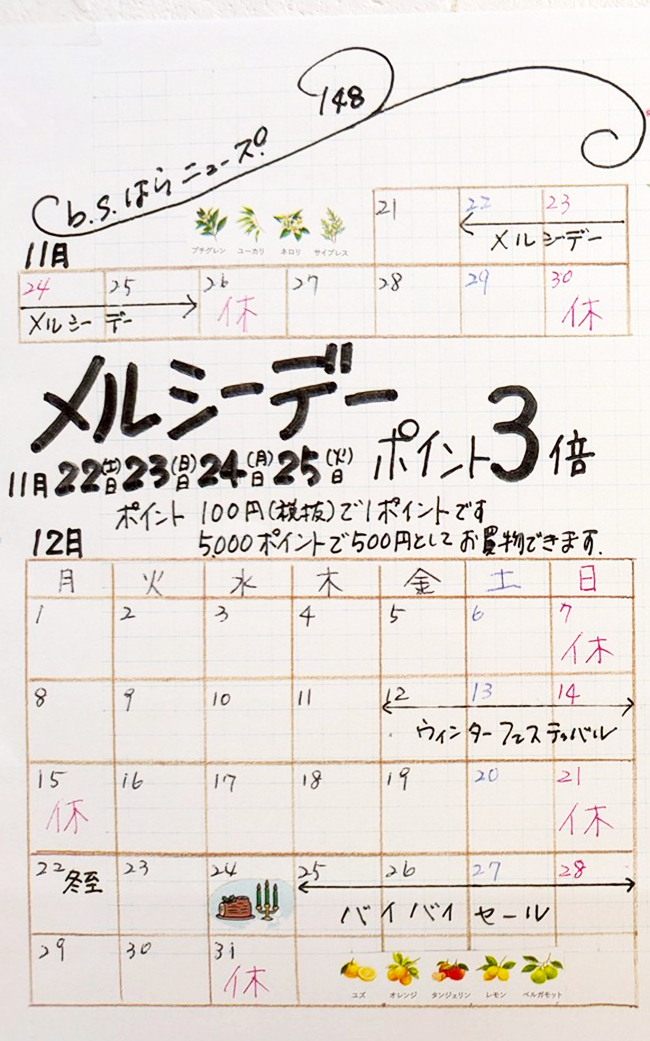 148
b.s.はらニュース!
プチグレン ユーカリ ネロリ サイプレス
11月
21 22 23
メルシーデー
24 25 26 27 28 29 30
メルシーデー 休 休
メルシーデー
11月22(土)日23(日)日24(月)日25(火)日 ポイント3倍
ポイント 100円(税抜)で1ポイントです
5,000ポイントで500円としてお買物できます.
12月
月 火 水 木 金 土 日
1 2 3 4 5 6 7
休
8 9 10 11 12 13 14
ウィンターフェスティバル
15 16 17 18 19 20 21
休 休
22 冬至 23 24 25 26 27 28
バイバイセール
29 30 31
休
ユズ オレンジ タンジェリン レモン ベルガモット